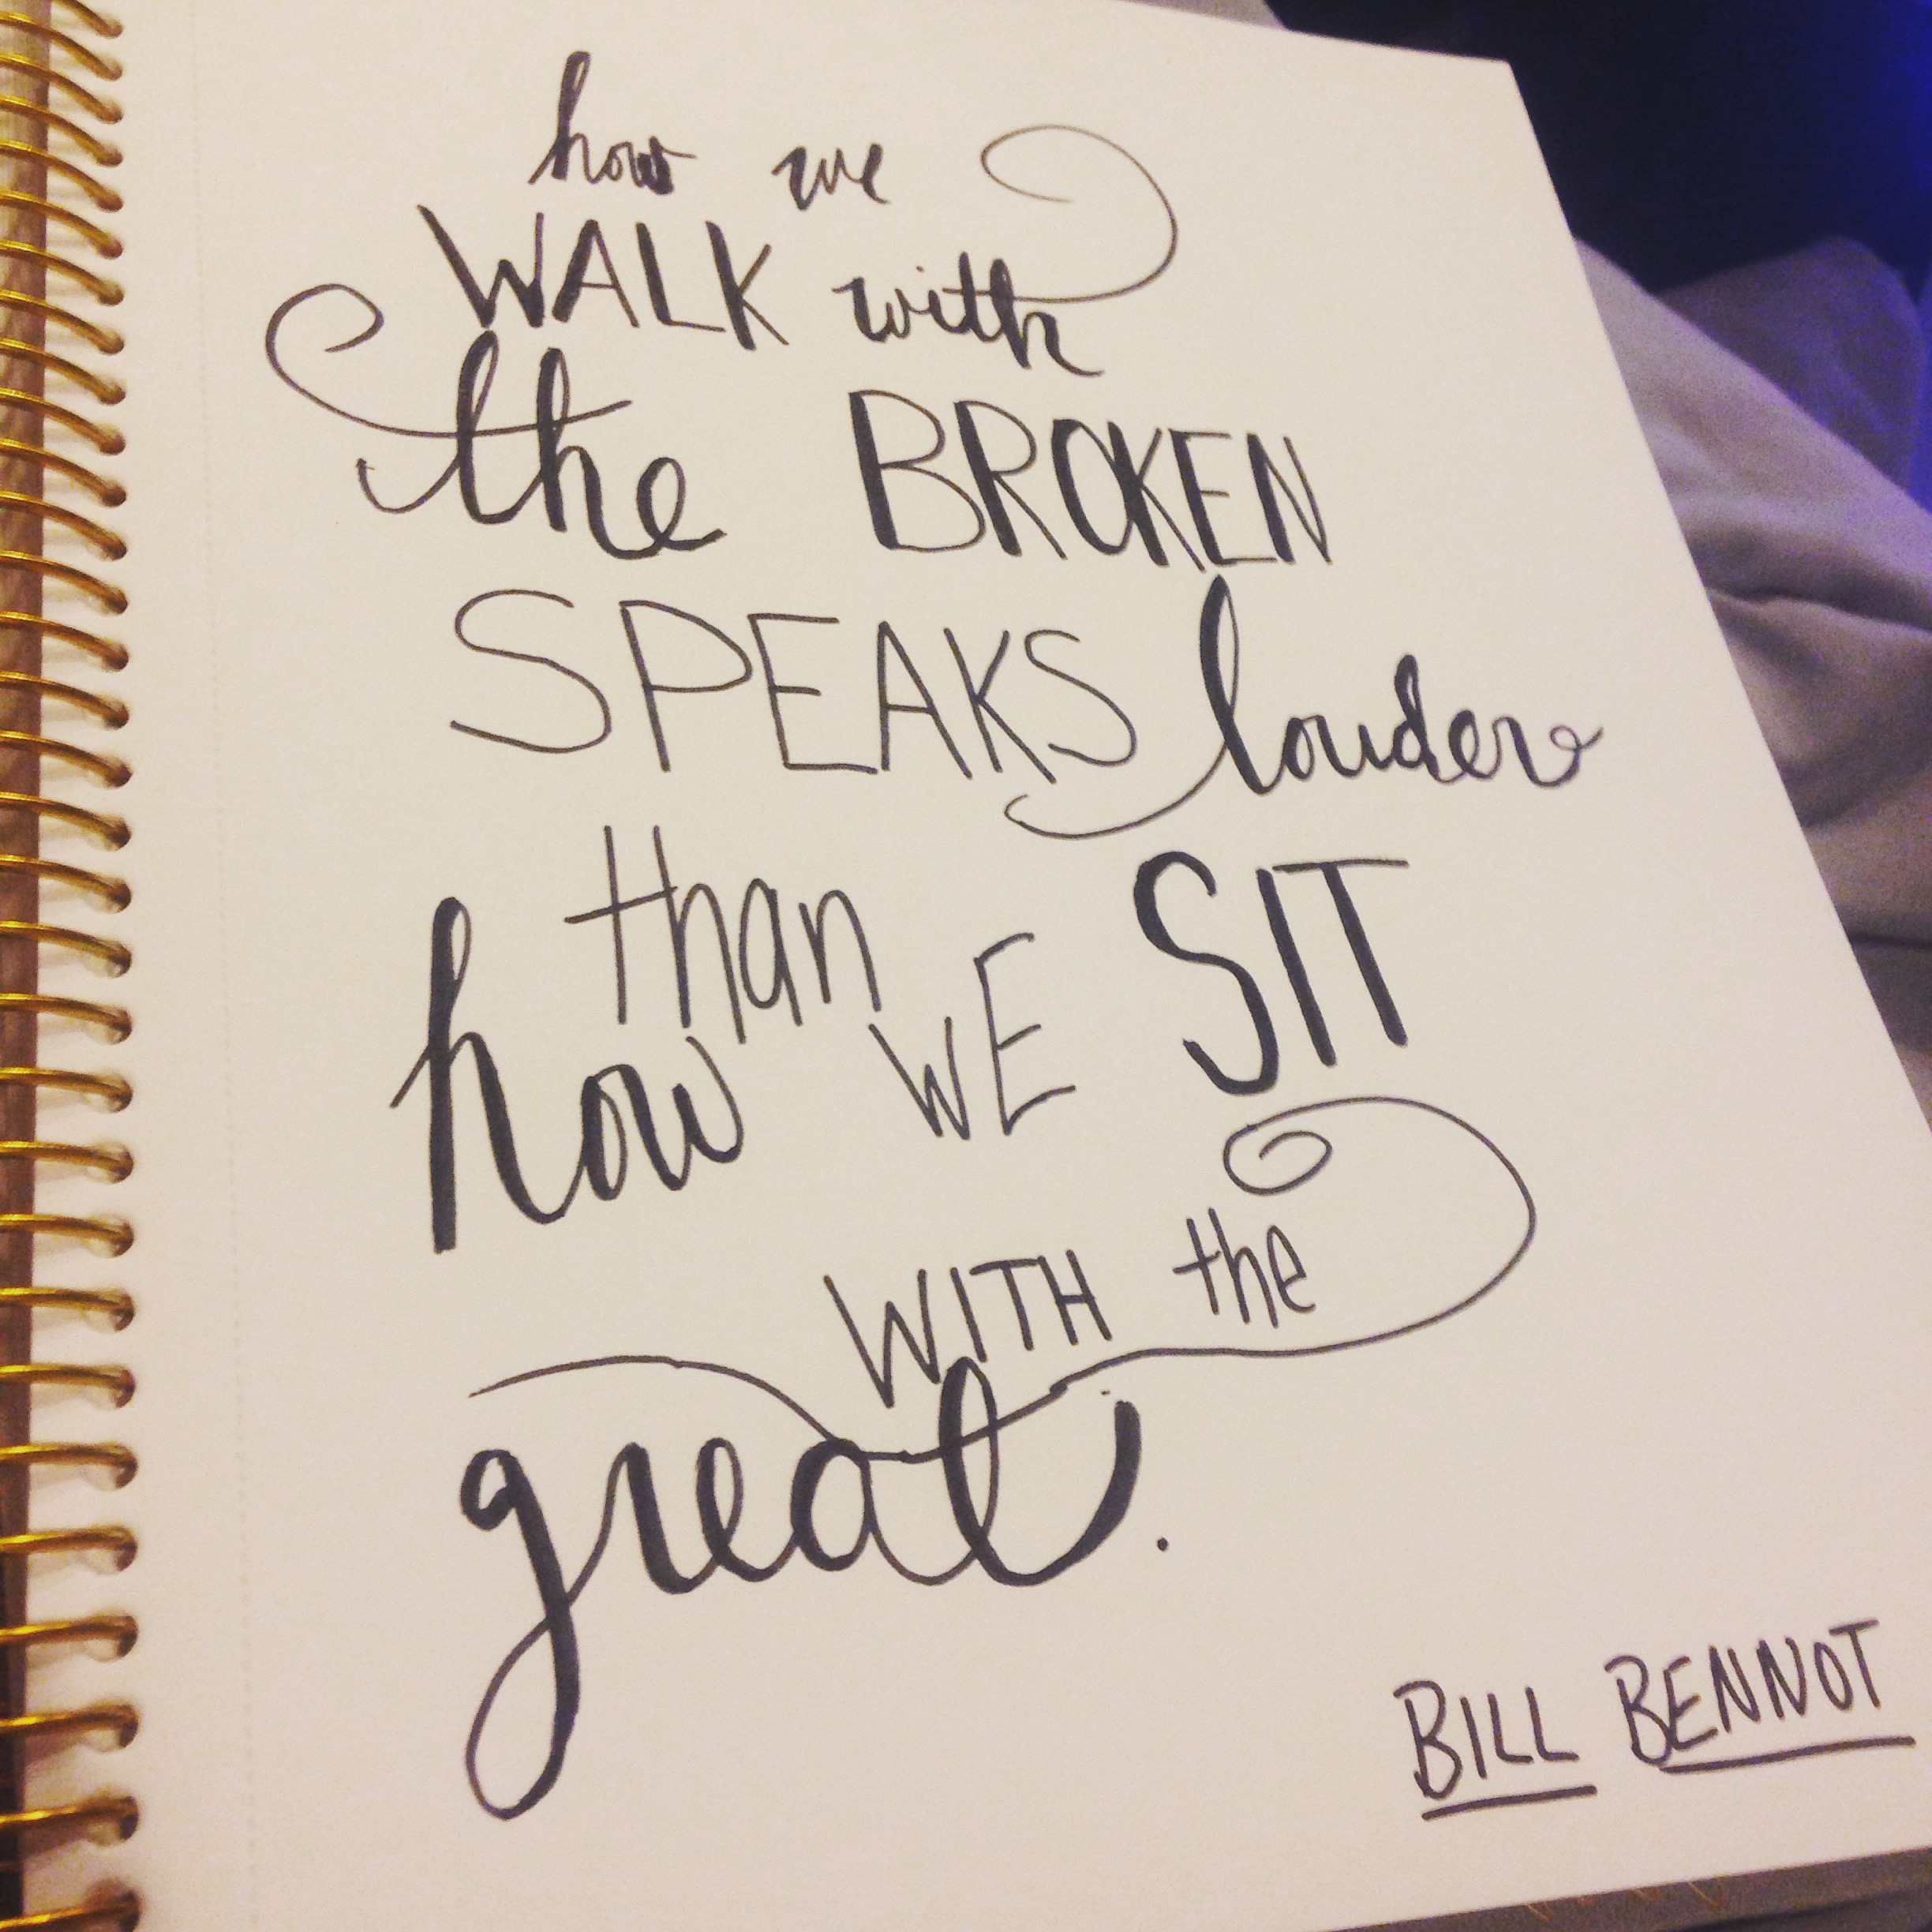 how we
WALK with
the BROKEN
SPEAKS louder
than
how WE SIT
WITH the
great.
BILL BENNOT